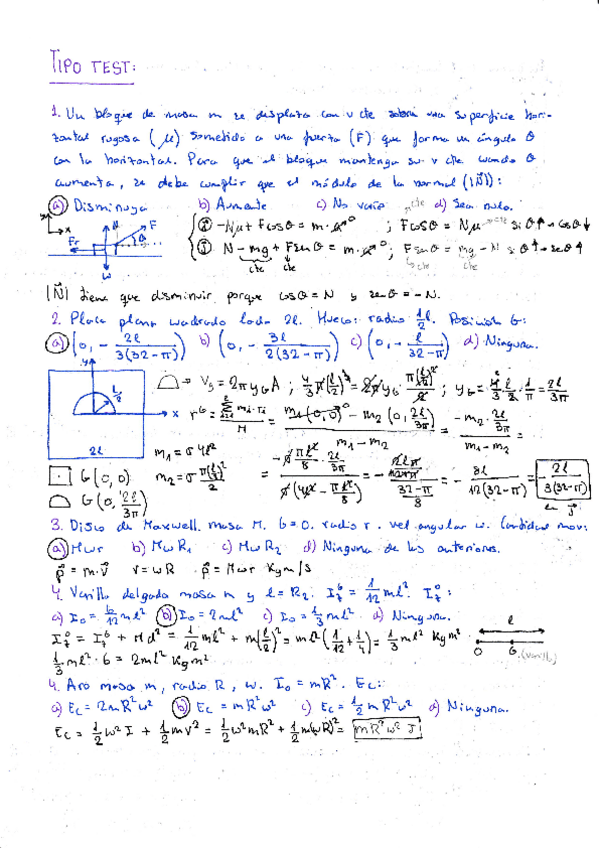 TIPO TEST:
1. Un bloque de masa m se desplaza con v cte sobre una superficie hori-
zontal rugosa (μ) sometido a una fuerza (F) que forma un ángulo θ
con la horizontal. Para que el bloque mantenga su v cte cuando θ
aumenta, se debe cumplir que el módulo de la normal (|N⃗|):
a) Disminuya b) Aumente c) No varíe d) Sea nulo.
x N F Fr θ W
-Nμ + Fcosθ = m·a⁰ ; Fcosθ = Nμ si θ↑→cosθ↓
N - mg + Fsenθ = m·a⁰ ; Fsenθ = mg - N si θ↑→senθ↑
cte cte cte cte
|N⃗| tiene que disminuir porque cosθ = N y senθ = -N.
2. Placa plana cuadrado lado 2l. Hueco: radio 1/2 l. Posición G:
a) (0, - 2l/3(32-π)) b) (0, - 3l/2(32-π)) c) (0, - l/32-π) d) Ninguna.
y x l/2 2l
→ V₃ = 2π y_G A ; 4/3 π (l/2)³ = 2π y_G · π(l/2)²/2 ; y_G = 4/3 · l/2 · 1/π = 2l/3π
r_G = Σ m_i · r_i / M = m₁(0,0)⁰ - m₂(0, 2l/3π) / m₁ - m₂ = -m₂ · 2l/3π / m₁ - m₂ =
m₁ = σ 4l²
G (0,0) m₂ = σ π(l/2)²/2
G (0, 2l/3π)
= -σ πl²/8 · 2l/3π / σ(4l² - πl²/8) = - 8l/12(32-π) = - 2l/3(32-π)
3. Disco de Maxwell. masa M. G=O. radio r. vel angular w. Cantidad mov:
a) Mwr b) MwR₁ c) MwR₂ d) Ninguna de las anteriores.
p⃗ = m·v⃗ v = wR p⃗ = Mwr Kgm/s
4. Varilla delgada masa m y l = R₂. I_z^G = 1/12 ml². I_z^O:
a) I₀ = ml² b) I₀ = 2ml² c) I₀ = 1/3 ml² d) Ninguna.
I_z^O = I_z^G + Md² = 1/12 ml² + m(l/2)² = ml²(1/12 + 1/4) = 1/3 ml² Kgm²
l O G
1/3 ml² · 6 = 2ml² Kgm²
4. Aro masa m, radio R, w. I₀ = mR². Ec:
a) Ec = 2mR²w² b) Ec = mR²w² c) Ec = 1/2 mR²w² d) Ninguna.
Ec = 1/2 w² I + 1/2 mv² = 1/2 w² mR² + 1/2 m(wR)² = mR²w² J